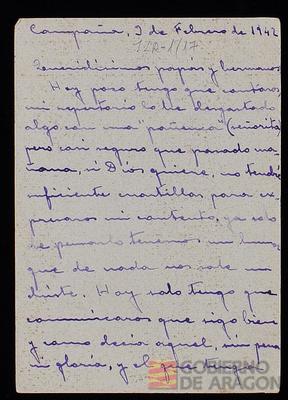 Campaña, 3 de Febrero de 1942
122-1/17
Queridísimos papás y hermanos
Hoy poco tengo que contaros
mi repertorio lo he
algo con una "pañenca" (señorita)
pero casi seguro que pasado ma-
ñana, si Dios quiere, no tendré
suficiente cuartillas para ex-
presaros mi contento, ya solo
de pensarlo tenemos un humor
que de nada nos sale un
chiste. Hoy solo tengo que
comunicaros que sigo bien
y como decía aquel, sin pena
ni gloria, y el que tenga
GOBIERNO
DE ARAGON